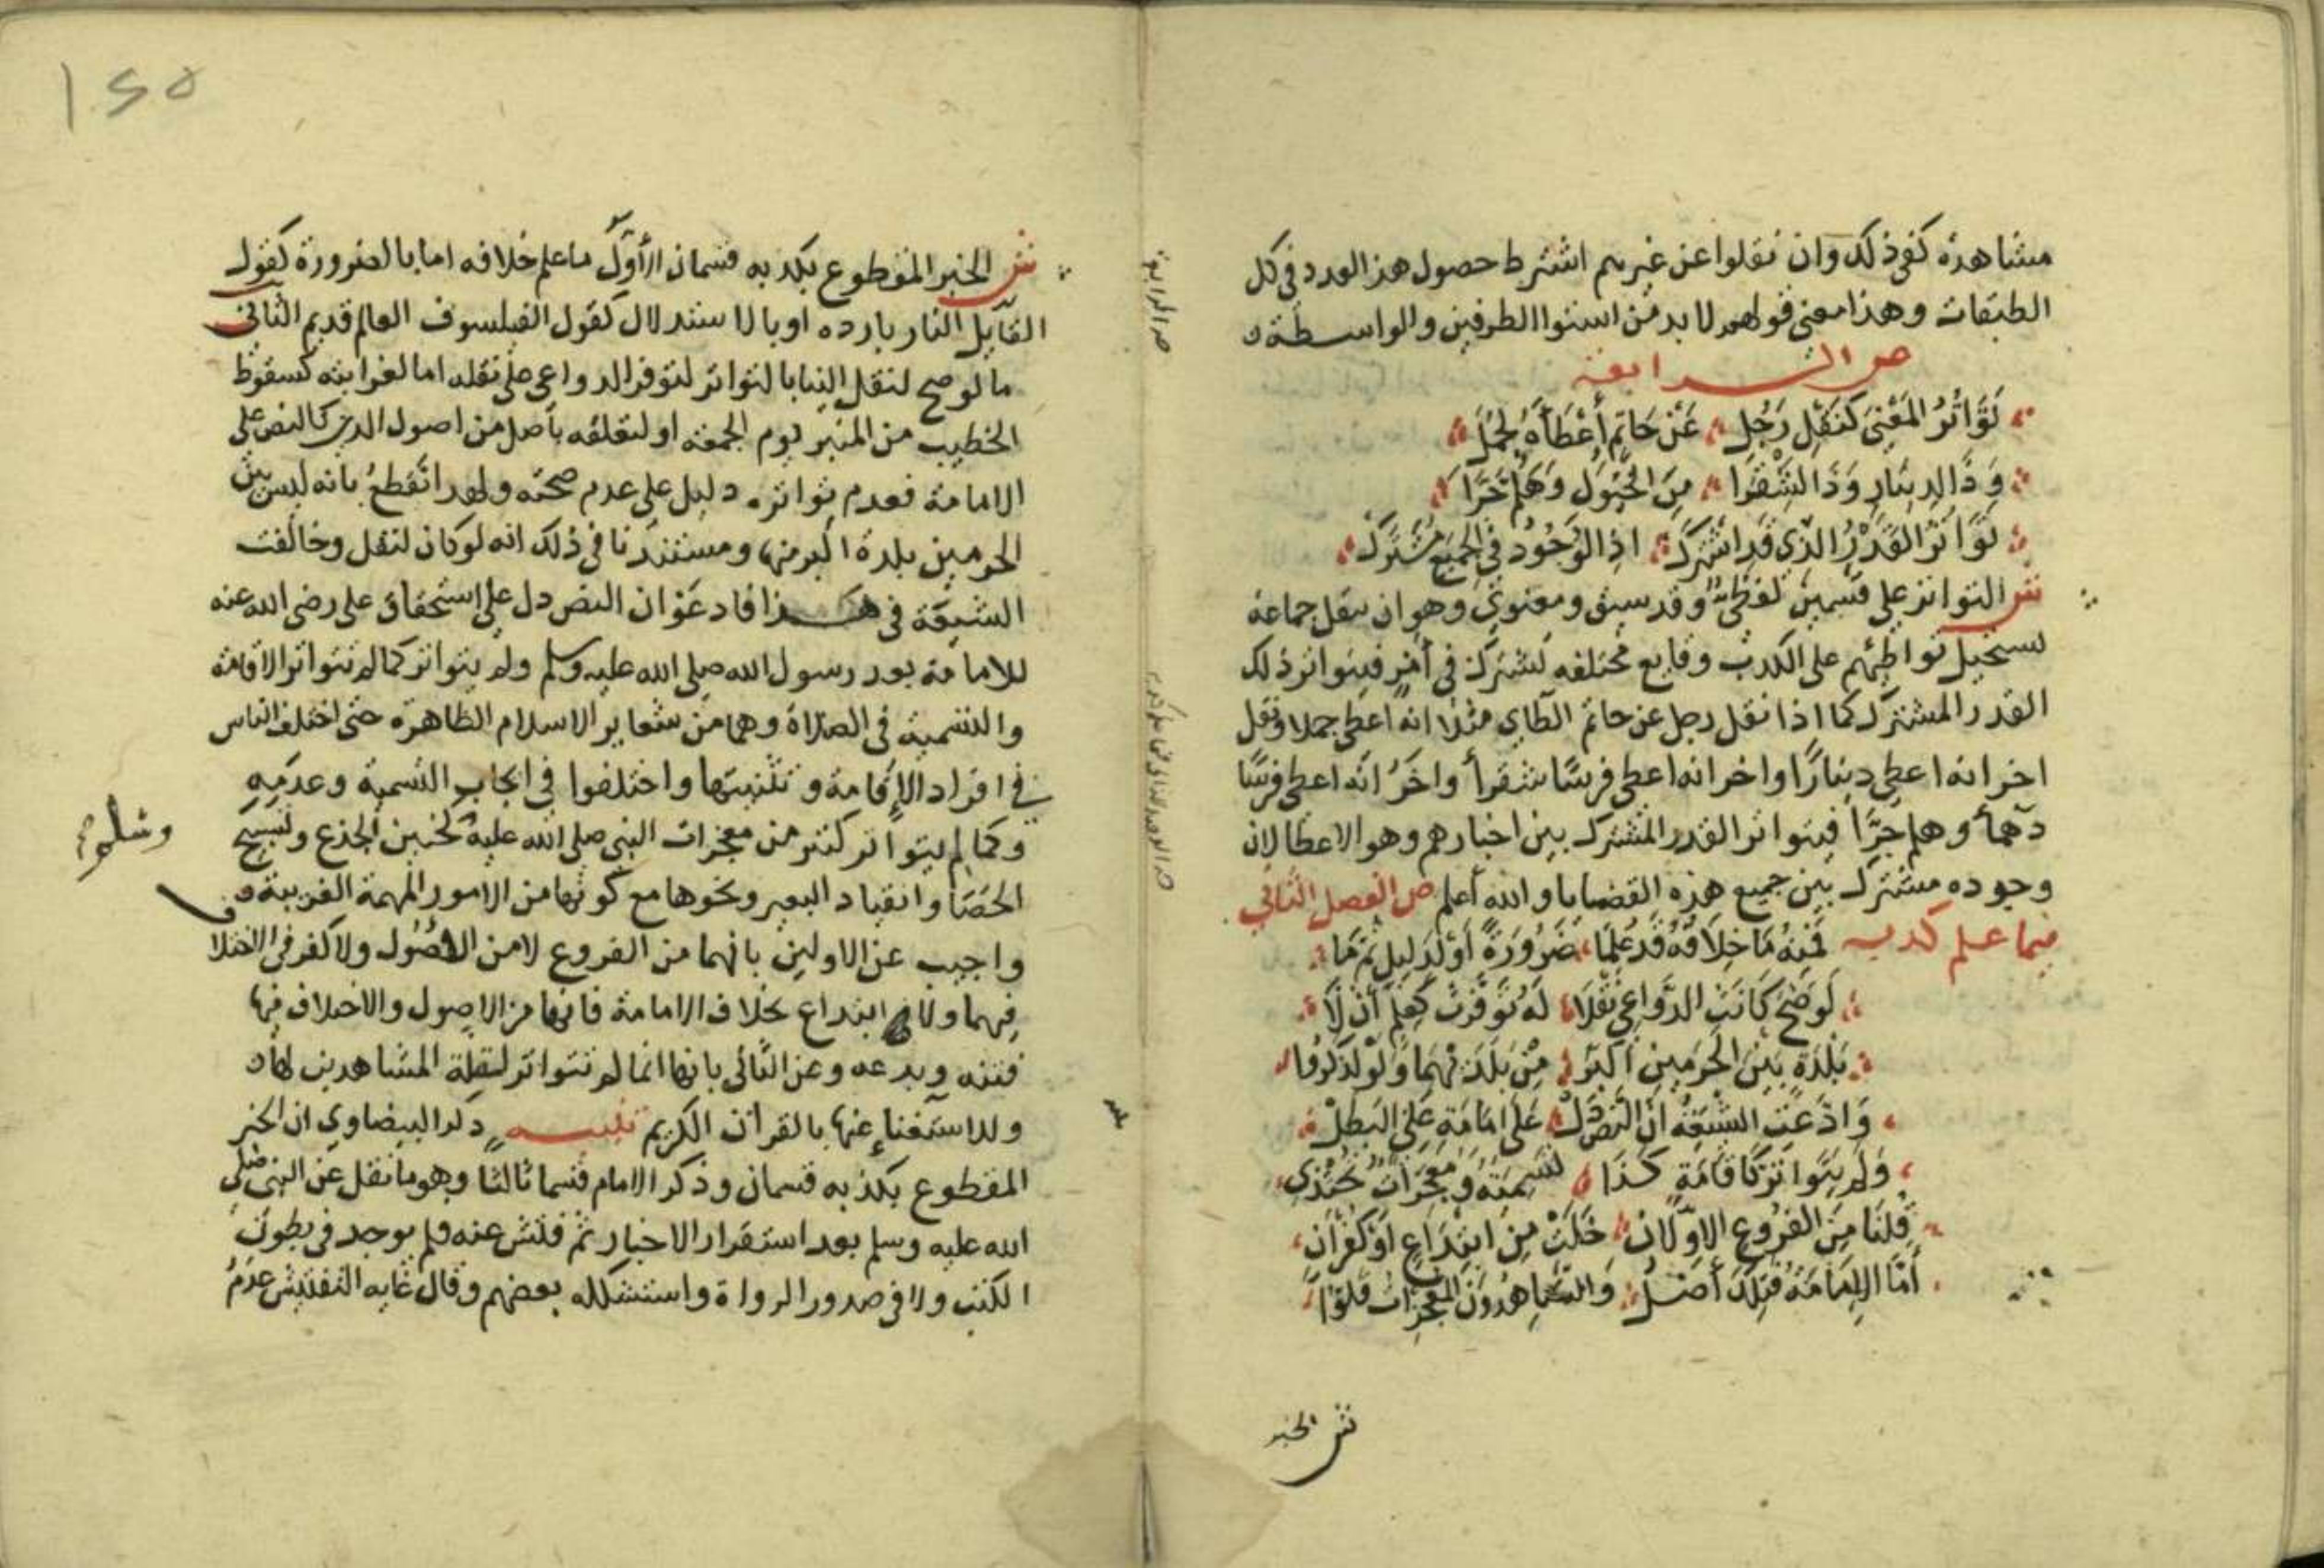 مشاهدة كفى ذلك وان نقلوا عن غيرهم اشترط حصول هذا العدد في كل
الطبقات وهذا معنى قولهم لا بد من استوا الطرفين والواسطة
ص الرابعة
تَوَاتُرُ المَعْنَى كَنَقْلِ رَجُلِ عَنْ حَاتِمٍ أَعْطَاهُ لِجُمَلَ
وَذَا لدِينَارِ وَذَا لشَقْرَا مِنَ الخُيُولِ وَهَلُمَّ جَرَّا
تَوَاتَرَ القَدْرُ الذِي قَدِ اشْتَرَكَ اذِ الوُجُودُ فِي الجَمِيعِ مُشْتَرَكْ
ش التواتر على قسمين لفظي وقد سبق ومعنوي وهو ان ينقل جماعة
يستحيل تواطئهم على الكذب وقايع مختلفه تشترك في أمر فيتواتر ذلك
القدر المشترك كما اذا نقل رجل عن حاتم الطاي مثلا انه اعطى جملا ونقل
اخر انه اعطى دينارًا واخر انه اعطى فرسًا شقرأ واخَرُ انه اعطى فرسًا
دهمأ وهلم جرَّا فيتواتر القدر المشترك بين اخبارهم وهو الاعطا لان
وجوده مشترك بين جميع هذه القضايا والله أعلم ص الفصل الثاني
فيما علم كذبه فَمِنْهُ مَا خِلَافُهُ قَدْ عُلِمَا ضَرُورَةً أَوْ لِدَلِيلٍ ثُمَّ مَا
لَو صَحَّ كَانَتِ الدَّوَاعِي نَقْلَا لَهُ تَوَفَّرَتْ كَعِلْمِ أَنْ لَا
بَلْدَةَ بَيْنَ الحَرَمَينِ اكْبَرُ مِنْ بَلْدَتَيْهِمَا وَلَوْ لَذَكَرُوا
وَادَّعَتِ الشِّيعَةُ انَّ النَّصَّ دَلْ عَلَى امَامَةِ عَلِيِّ البَطَلْ
وَلَم يَتَوَاتَرْ كَاقَامَةٍ كَذَا تَسْمِيَةٌ وَمُعْجِزَاتٌ تُحْتَذَى
قُلْنَا مِنَ الفُرُوعِ الاوَّلَانِ خَلَتْ مِنِ ابْتِدَاعٍ اوْ كُفْرَانِ
أَمَّا الِامَامَةُ فَتِلْكَ أَصْلُ وَالشَّاهِدُونَ المُعْجِزَاتِ قَلُّوا
ش الخبر
ش الخبر المقطوع بكذبه قسمان الأَوَّل ما علم خلافه اما بالضرورة كقول
القايل النار بارده او بالاستدلال كقول الفيلسوف العالم قديم الثاني
ما لو صح لنقل الينا بالتواتر لتوفر الدواعي على نقله اما لغرابته كسقوط
الخطيب من المنبر يوم الجمعة او لتعلقه بأصل من اصول الدين كالنص على
الامامة فعدم تواتره دليل على عدم صحته ولهذا نقطع بانه ليس بين
الحرمين بلدة اكبر منها ومستندنا في ذلك انه لو كان لنقل وخالفت
الشيعة في هذا فادعوا ان النص دل على استحقاق علي رضي الله عنه
للامامة بعد رسول الله صلى الله عليه وسلم ولم يتواتر كما لم تتواتر الاقامة
والتسمية في الصلاة وهما من شعاير الاسلام الظاهرة حتى اختلف الناس
في افراد الاقامة وتثنيتها واختلفوا في ايجاب التسمية وعدمه
وكما لم يتواتر كثير من معجزات النبي صلى الله عليه كحنين الجذع وتسبيح
وسلم
الحصَا وانقياد البعير ونحوها مع كونها من الامور المهمة الغريبة
واجيب عن الاولين بانهما من الفروع لا من الاصول ولا كفر في الاختلاف
فيهما ولا ابتداع بخلاف الامامة فانها من الاصول والاختلاف فيها
فتنه وبدعه وعن الثاني بانها انما لم تتواتر لقلة المشاهدين لها
وللاستغناء عنها بالقرأن الكريم تنبيه ذكر البيضاوي ان الخبر
المقطوع بكذبه قسمان وذكر الامام قسما ثالثا وهو ما نقل عن النبي صلى
الله عليه وسلم بعد استقرار الاخبار ثم فتش عنه فلم يوجد في بطون
الكتب ولا في صدور الرواة واستشكله بعضهم وقال غايه التفتيش عدم